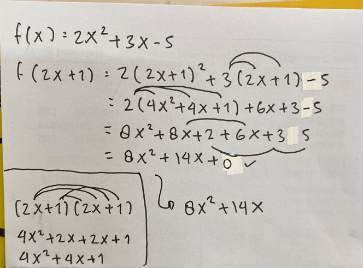 f(x) = 2x² + 3x - 5
f(2x+1) = 2(2x+1)² + 3(2x+1) - 5
= 2(4x²+4x+1) + 6x + 3 - 5
= 8x² + 8x + 2 + 6x + 3 5
= 8x² + 14x + 0 ✓
8x² + 14x
(2x+1)(2x+1)
4x² + 2x + 2x + 1
4x² + 4x + 1